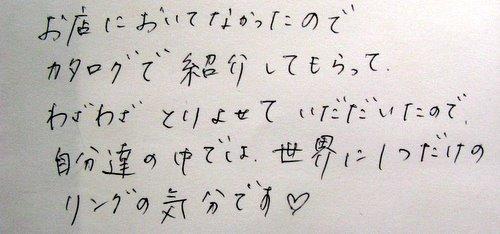 お店においてなかったので
カタログで紹介してもらって.
わざわざとりよせていだだいたので.
自分達の中では.世界に1つだけの
リングの気分です♡